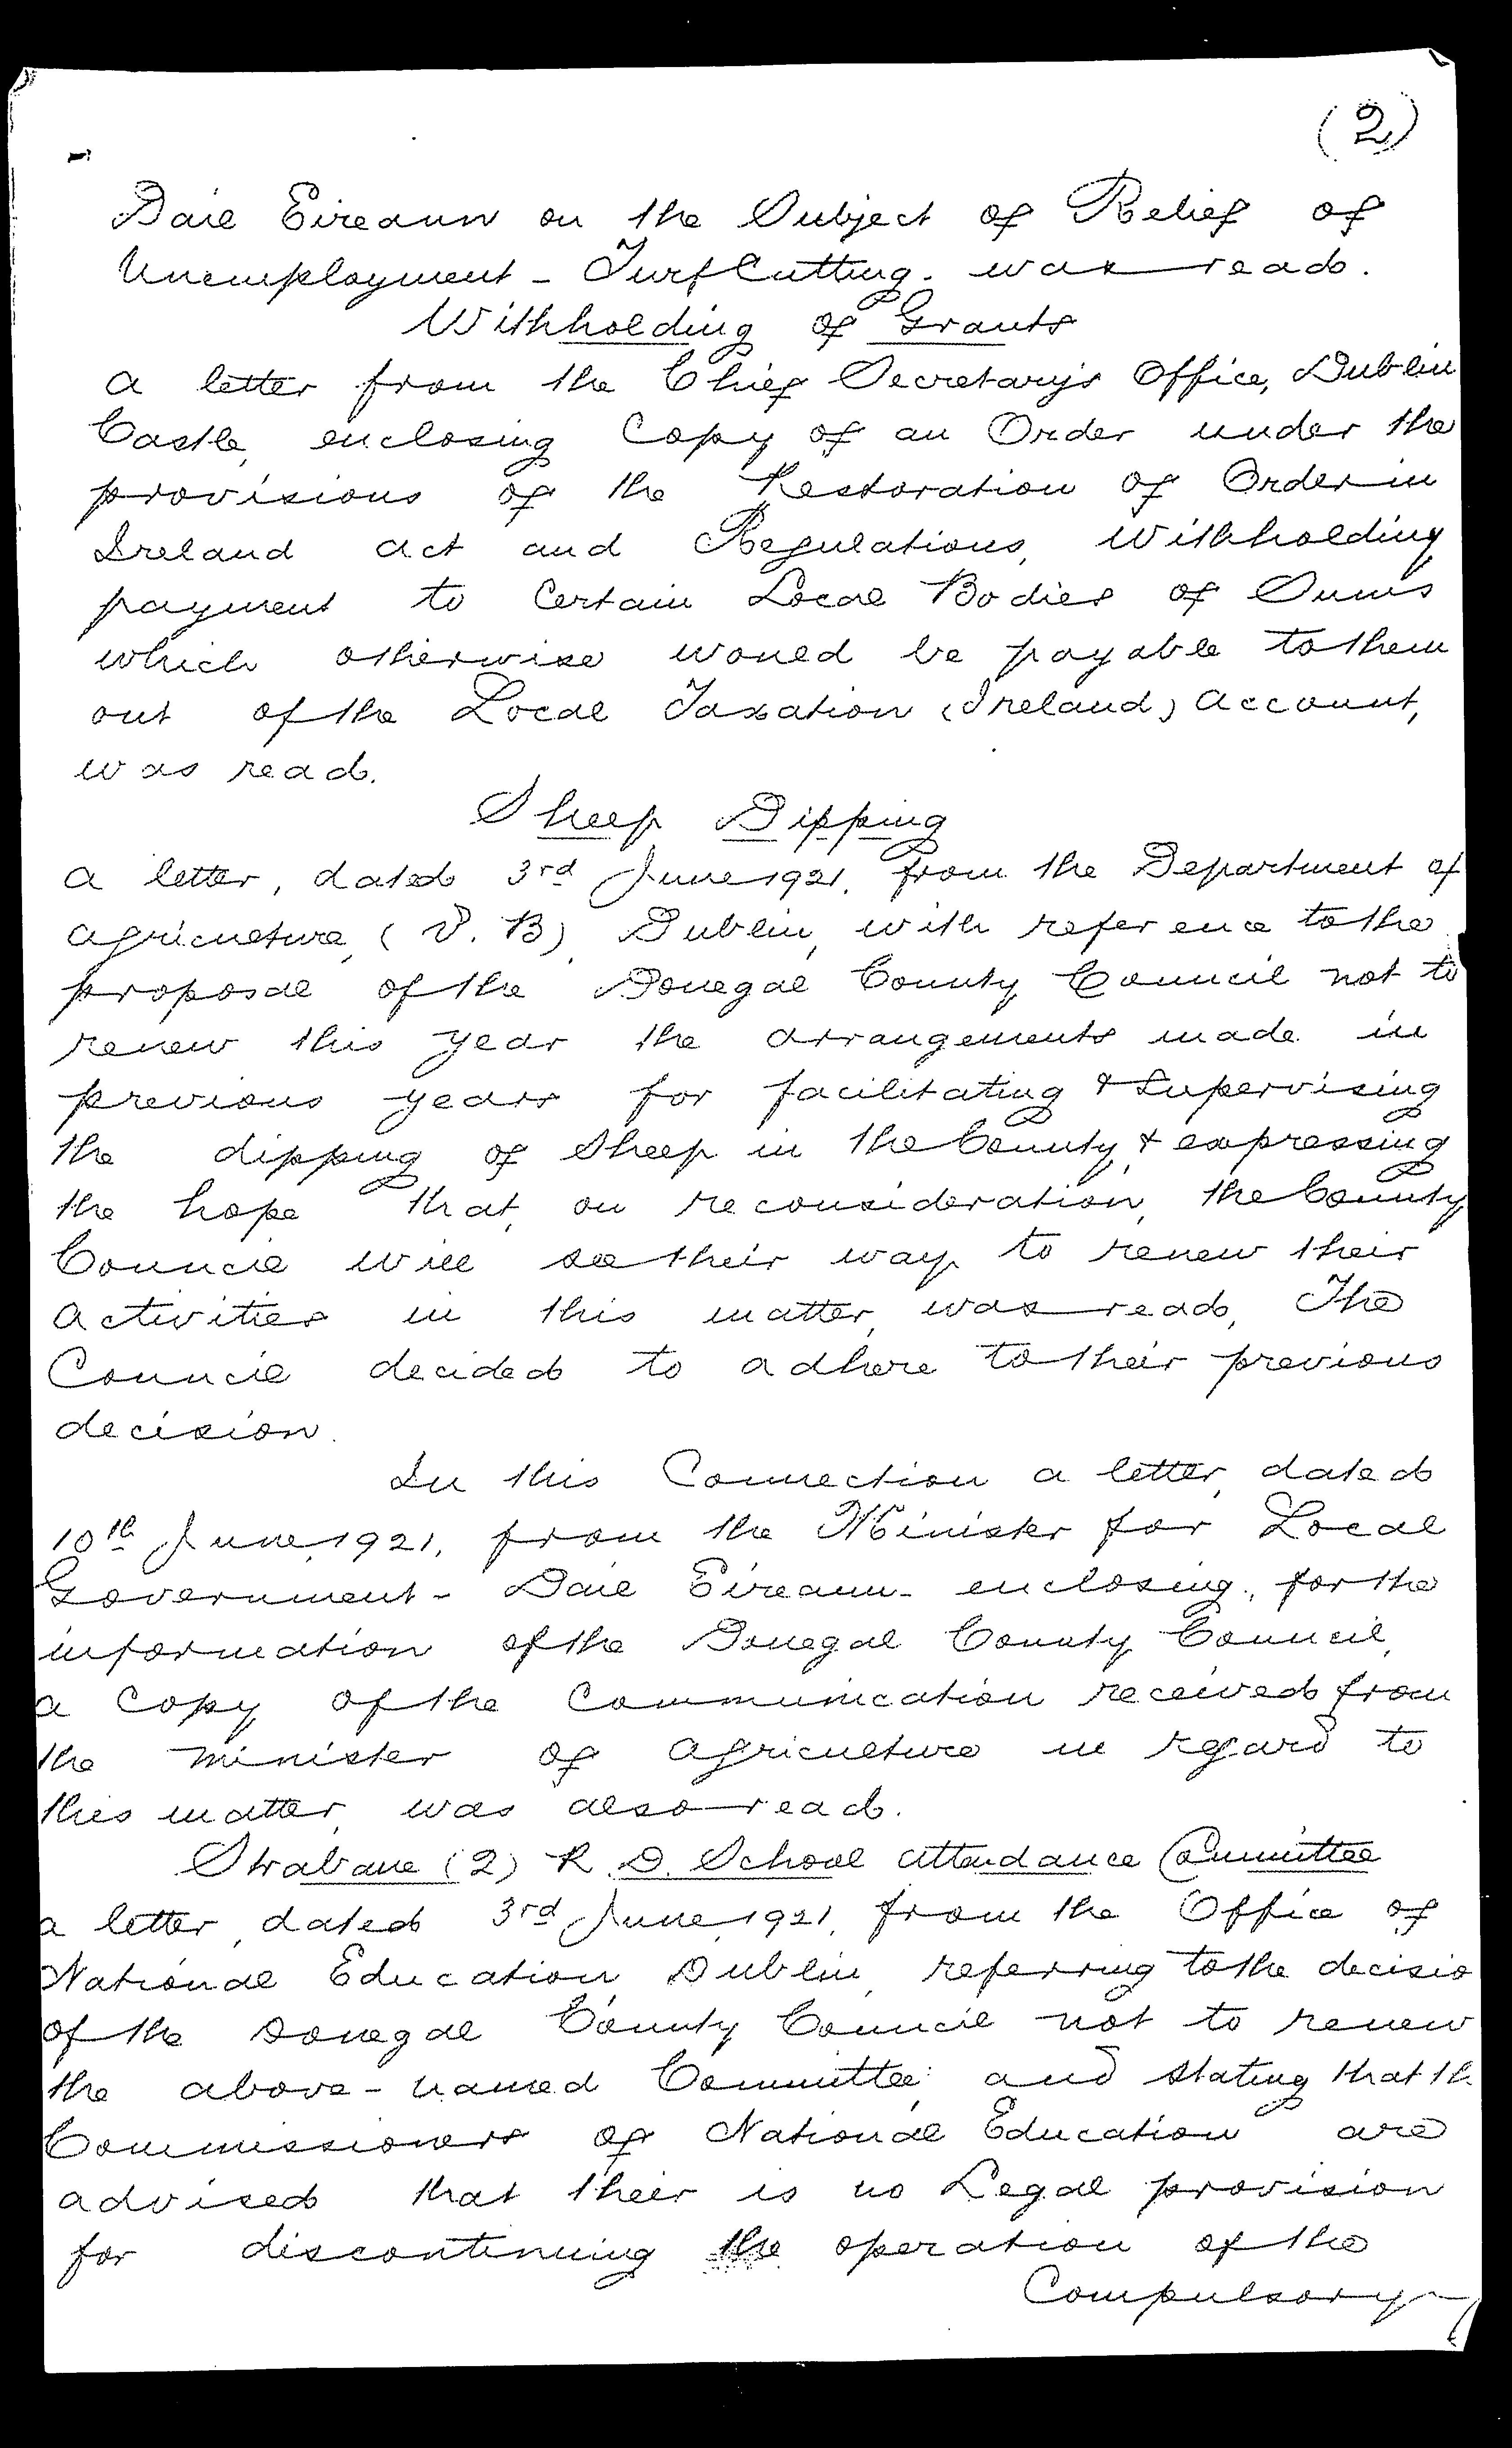 (2)
Dail Eireann on the Subject of Relief of
Unemployment - Turf Cutting. was read.
Withholding of Grants
a letter from the Chief Secretary's Office, Dublin
Castle, enclosing Copy of an Order under the
provisions of the Restoration of Order in
Ireland Act and Regulations, Withholding
payment to Certain Local Bodies of Sums
which otherwise would be payable to them
out of the Local Taxation (Ireland) Account,
was read.
Sheep Dipping
a letter, dated 3rd June 1921, from the Department of
Agriculture, (V. B), Dublin, with reference to the
proposal of the Donegal County Council not to
renew this year the arrangements made in
previous years for facilitating & Supervising
the dipping of Sheep in the County, & expressing
the hope that, on reconsideration, the County
Council will see their way to renew their
Activities in this matter, was read, The
Council decided to adhere to their previous
decision.
In this Connection a letter, dated
10th June, 1921, from the Minister for Local
Government - Dail Eireann - enclosing, for the
information of the Donegal County Council,
a Copy of the Communication received from
the Minister of Agriculture in regard to
this matter, was also read.
Strabane (2) R. D. School Attendance Committee
a letter, dated 3rd June, 1921, from the Office of
National Education, Dublin, referring to the decisio
of the Donegal County Council not to renew
the above-named Committee, and Stating that th
Commissioners of National Education are
advised that their is no Legal provision
for discontinuing the operation of the
Compulsory